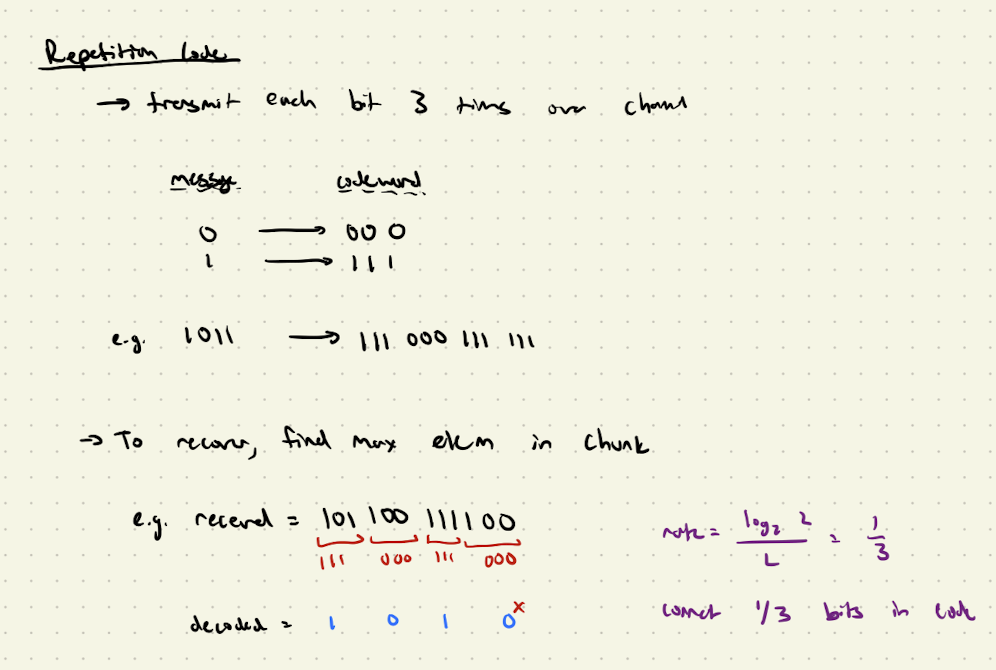 Repetition Code
→ transmit each bit 3 times over channel
message codeword
0 → 000
1 → 111
e.g. 1011 → 111 000 111 111
→ To recover, find max elem in chunk
e.g. received = 101 100 111 100
111 000 111 000
decoded = 1 0 1 0 x
rate = log₂ 2 / L = 1/3
correct 1/3 bits in code